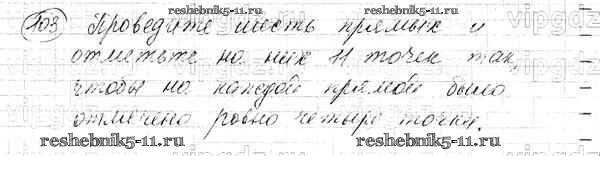 103 Проведите шесть прямых и
отметьте на них 11 точек так,
чтобы на каждой прямой было
отмечено ровно четыре точки.
reshebnik5-11.ru
reshebnik5-11.ru
reshebnik5-11.ru